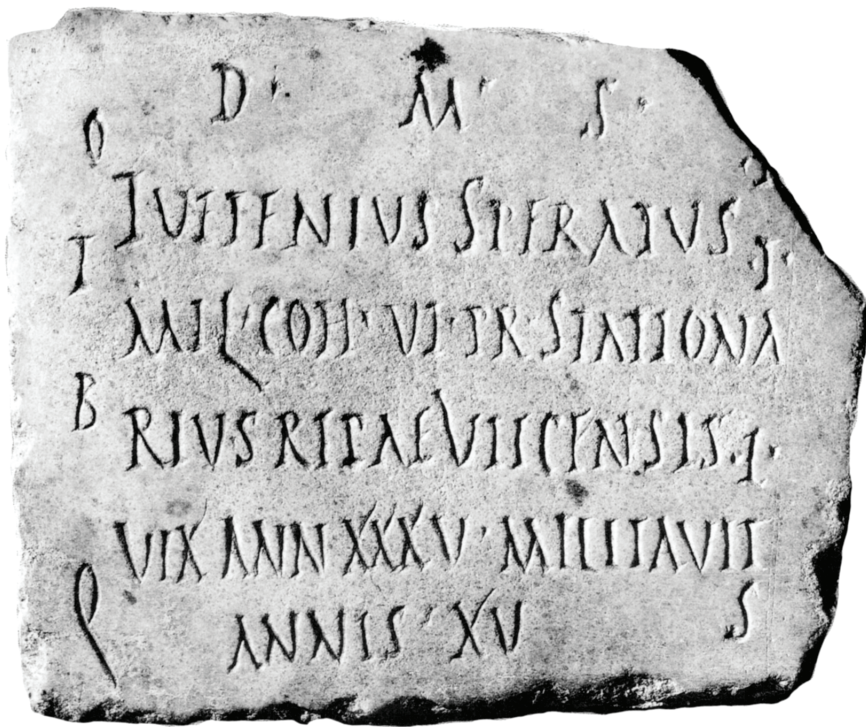 D · M · S ·
O
TUTTENIUS SPERATUS
T · T ·
MIL · COH · VI · PR · STATIONA
B
RIUS RIPAE UTICENSIS · L ·
VIX ANN XXXV · MILITAVIT
Q ANNIS · XV S